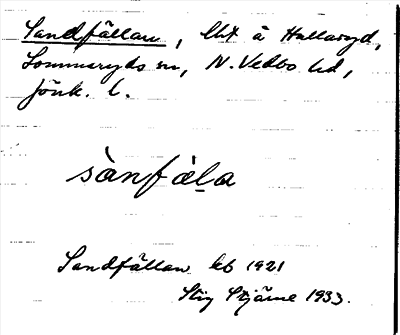 Sandfällan, lht å Hullaryd,
Lommaryds sn, N. Vedbo hd,
Jönk. l.
sànfàla
Sandfällan kb 1921
Stig Stjärne 1933.